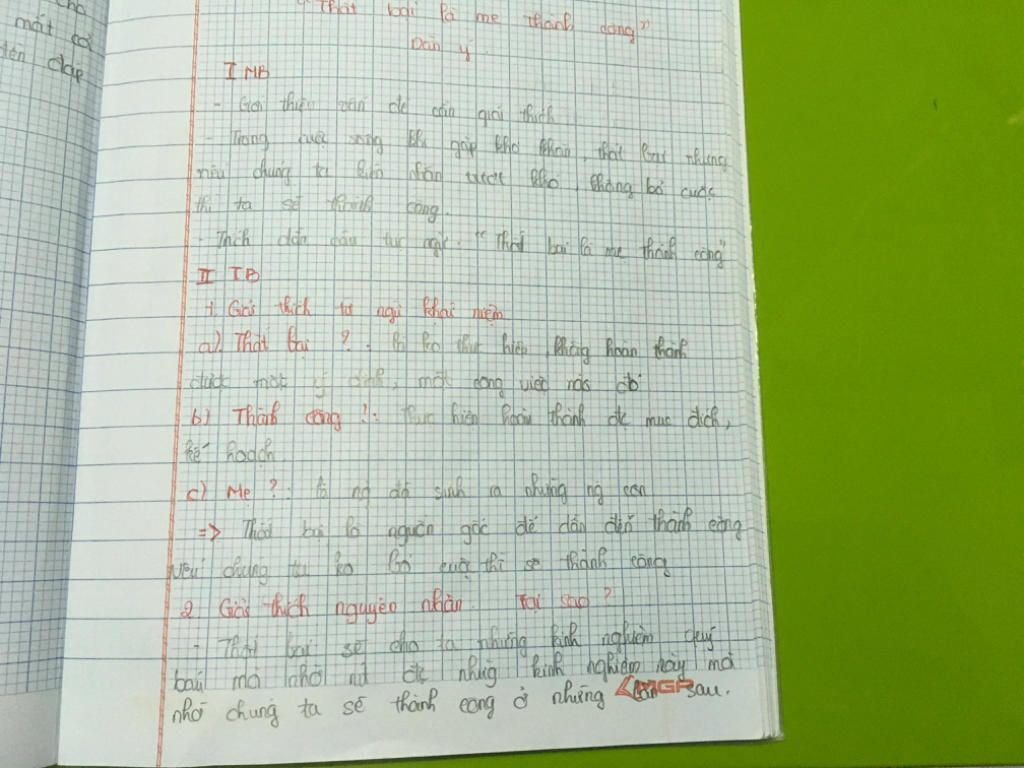 mất cả
đến đáp
"Thất bại là mẹ thành công"
Dàn ý
I MB
- Giới thiệu vấn đề cần giải thích
- Trong cuộc sống khi gặp khó khăn, thất bại nhưng
nếu chúng ta kiên nhẫn vượt khó, không bỏ cuộc
thì ta sẽ thành công.
- Trích dẫn câu tục ngữ: "Thất bại là mẹ thành công"
II TB
1. Giải thích từ ngữ khái niệm
a) Thất bại ?: là ko thực hiện, không hoàn thành
được một ý định, một công việc nào đó
b) Thành công ?: thực hiện hoàn thành đc mục đích,
kế hoạch
c) Mẹ ?: là ng đã sinh ra những ng con
=> Thất bại là nguồn gốc để dẫn đến thành công
nếu chúng ta ko bỏ cuộc thì sẽ thành công
2. Giải thích nguyên nhân. Tại sao ?
- Thất bại sẽ cho ta những kinh nghiệm quý
báu mà nhờ nó đc những kinh nghiệm này mà
nhờ chúng ta sẽ thành công ở những lần sau.